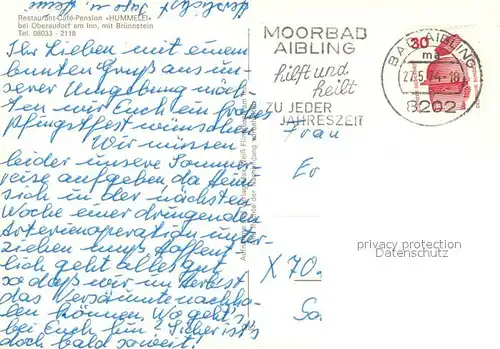 herzlichst Eure
Restaurant-Café-Pension »HUMMELEI«
bei Oberaudorf am Inn, mit Brünnstein
Tel. 08033 - 2118
Ihr Lieben mit einem
bunten Gruß aus un-
serer Umgebung möch-
ten wir Euch ein frohes
Pfingstfest wünschen.
Wir müssen
leider unsere Sommer-
reise aufgeben, da
sich in der nächsten
Woche einer dringenden
Arterienoperation unter-
ziehen muß. Hoffent-
lich geht alles gut
so daß wir im Herbst
das Versäumte nachho-
len können. Wie geht's
bei Euch
doch bald soweit!
MOORBAD
AIBLING
hilft und
heilt
ZU JEDER
JAHRESZEIT
BAD AIBLING
ma
27.5.74-18
8202
30
Frau
X 70
privacy protection
Datenschutz